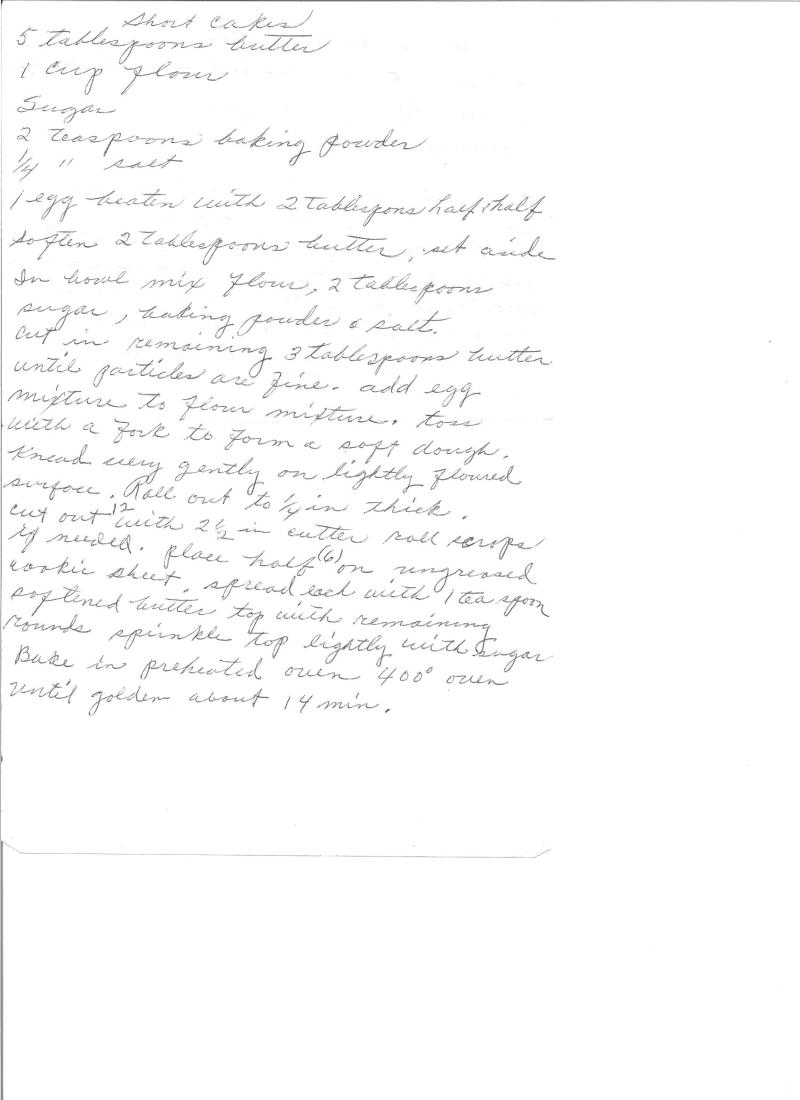 Short cakes
5 tablespoons butter
1 cup flour
Sugar
2 teaspoons baking powder
1/4 " salt
1 egg beaten with 2 tablespons half & half
soften 2 tablespoons butter, set aside
In bowl mix flour, 2 tablespoons
sugar, baking powder & salt.
cut in remaining 3 tablespoons butter
until particles are fine. add egg
mixture to flour mixture. toss
with a fork to form a soft dough.
Knead very gently on lightly floured
surface. Roll out to 1/4 in thick.
cut out 12 with 2 1/2 in cutter roll scrops
if needed. place half (6) on ungreased
cookie sheet. spread each with 1 tea spoon
softened butter top with remaining
rounds sprinkle top lightly with sugar
Bake in preheated oven 400° oven
until golden about 14 min.